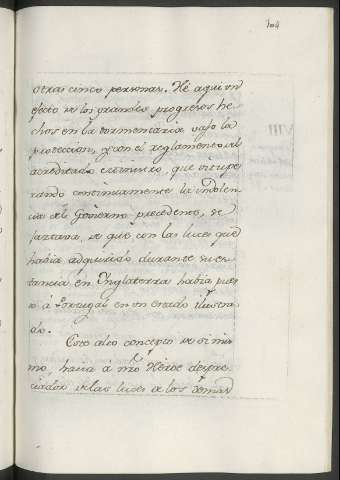 104
otras cinco personas. Hé aqui un
efecto de los grandes progresos he-
chos en la tormentaria vajo la
proteccion, y con el reglamento del
acreditado Ministro, que vitupe
rando continuamente la indolen
cia del Govierno precedente, se
jactava, de que con las luces que
havia adquirido durante su es-
tancia en Ynglaterra havia pues
to á Portugal en un estado ilustra
do.
Este alto concepto de si mis
mo, hacia á nro Héroe despre
ciador de las luces de los demas